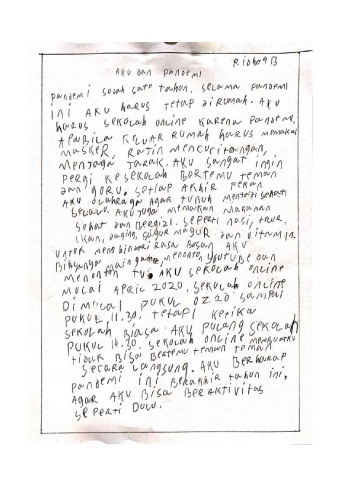 Ridho 9B
AKU Dan Pandemi
Pandemi sudah satu tahun. selama pandemi
ini AKU harus tetap dirumah. AKU
harus sekolah online karena pandemi.
Apabila KeLUAR RUMAH harus memakai
masker, Ratin mencucitangan,
Menjaga Jarak. AKU Sangat ingin
Pergi Kesekolah Bertemu teman
dan guru. setiap akhir Pekan
AKU olahraga agar tubuh menjadi sehat
AKU Juga memakan makanan
Sehat dan Bergizi. seperti nasi,
Ikan, Daging, sayur dan vitamin.
Untuk menghindari Rasa Bosan AKU
main game, menonton youtube dan
Menonton TV. AKU sekolah online
mulai April 2020. sekolah online
Dimulai Pukul 07.20 sampai
PUKUL 11.30. tetapi ketika
sekolah Biasa AKU Pulang sekolah
PUKUL 14.30. sekolah online membuatku
tidak Bisa Bertemu teman teman
Secara Langsung. AKU Berharap
Pandemi ini Berakhir tahun ini,
Agar AKU Bisa BerAKtivitas
seperti Dulu.